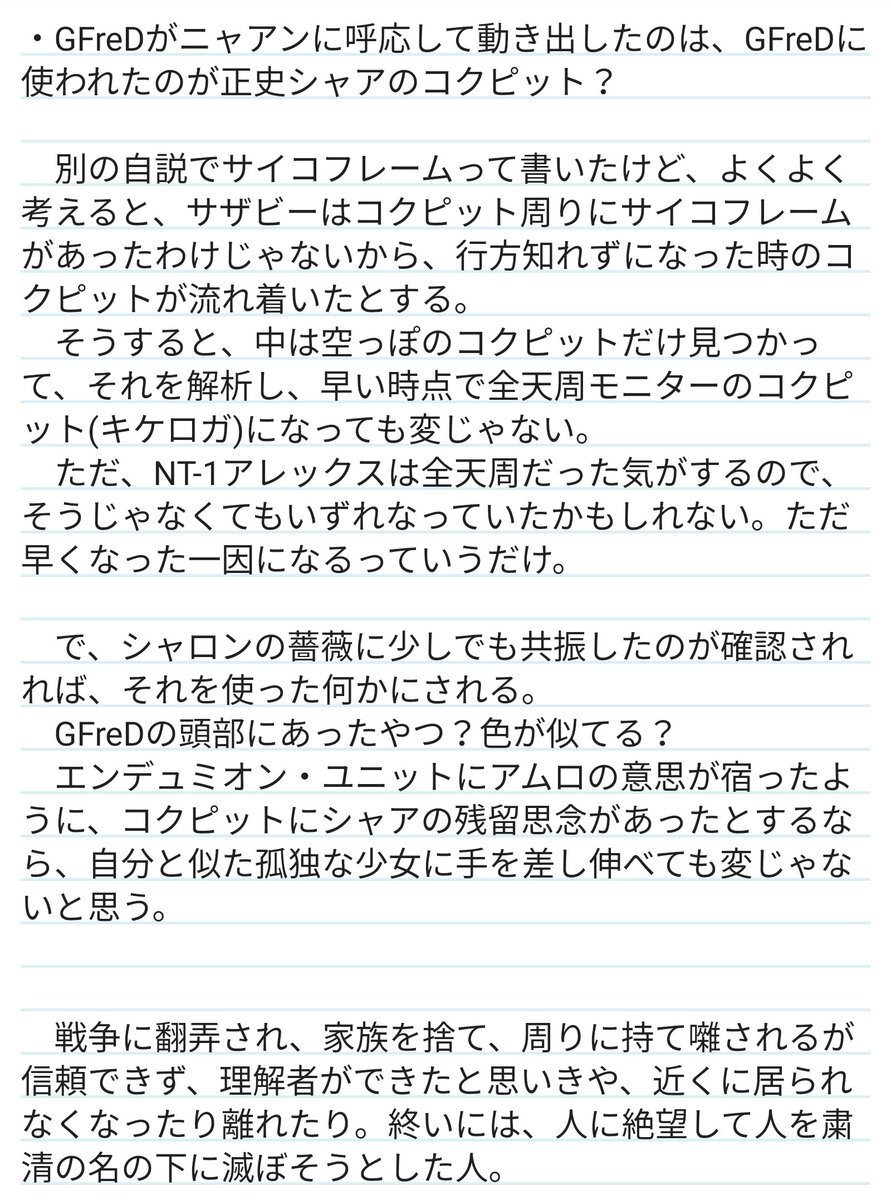 ・GFreDがニャアンに呼応して動き出したのは、GFreDに
使われたのが正史シャアのコクピット？
　別の自説でサイコフレームって書いたけど、よくよく
考えると、サザビーはコクピット周りにサイコフレーム
があったわけじゃないから、行方知れずになった時のコ
クピットが流れ着いたとする。
　そうすると、中は空っぽのコクピットだけ見つかっ
て、それを解析し、早い時点で全天周モニターのコクピ
ット(キケロガ)になっても変じゃない。
　ただ、NT-1アレックスは全天周だった気がするので、
そうじゃなくてもいずれなっていたかもしれない。ただ
早くなった一因になるっていうだけ。
　で、シャロンの薔薇に少しでも共振したのが確認され
れば、それを使った何かにされる。
　GFreDの頭部にあったやつ？色が似てる？
　エンデュミオン・ユニットにアムロの意思が宿ったよ
うに、コクピットにシャアの残留思念があったとするな
ら、自分と似た孤独な少女に手を差し伸べても変じゃな
いと思う。
　戦争に翻弄され、家族を捨て、周りに持て囃されるが
信頼できず、理解者ができたと思いきや、近くに居られ
なくなったり離れたり。終いには、人に絶望して人を粛
清の名の下に滅ぼそうとした人。